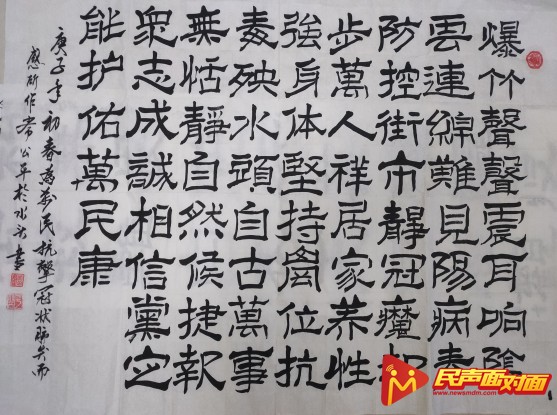 爆竹聲聲震耳响
雲連綿難見陽病毒
防控街市靜冠魔
步萬人祥居家养性
強身体堅持崗位抗
毒殃水頭自古萬事
無恬靜自然候捷報
衆志成誠相信黨定
能护佑萬民康
庚子年初春為萬民抗擊冠状肺炎而
感所作常公平於水头書
民声面对面
www.newsmdm.com